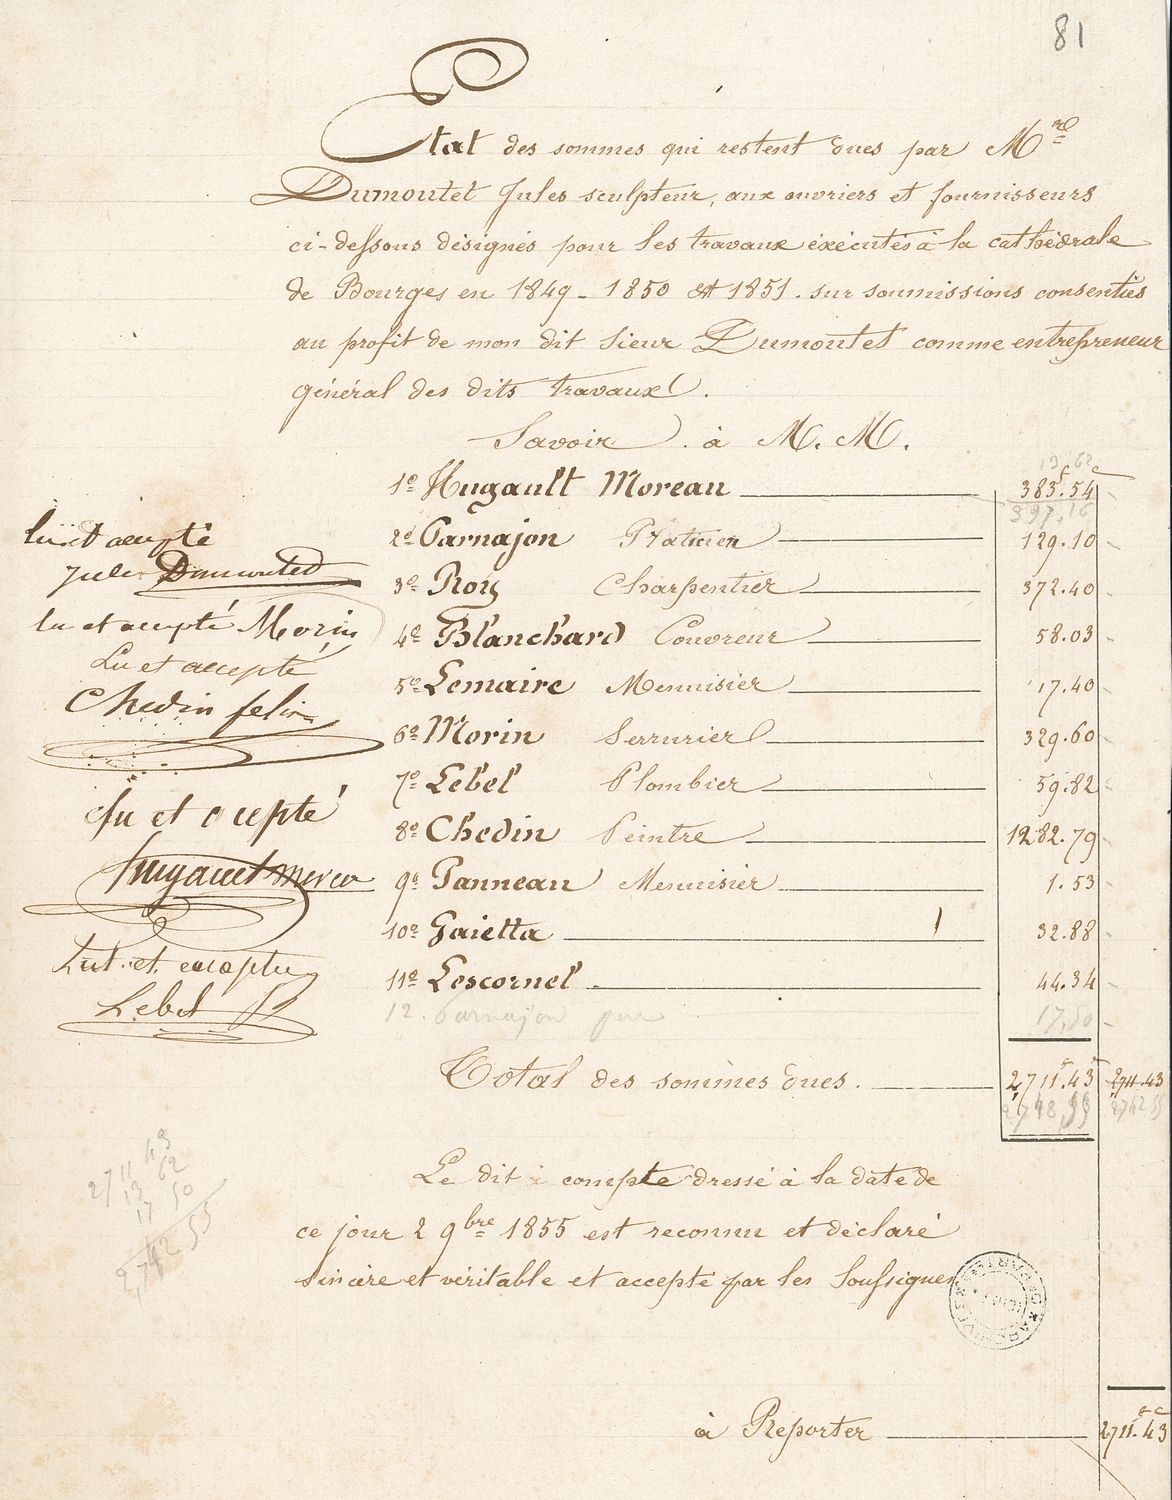 81
Etat des sommes qui restent dues par Mr
Dumoutet Jules sculpteur, aux ouvriers et fournisseurs
ci-dessous désignés pour les travaux éxécutés à la cathédrale
de Bourges en 1849 - 1850 et 1851. sur soumissions consenties
au profit de mon dit sieur Dumoutet comme entrepreneur
général des dits travaux.
Savoir à M. M.
13,62
f c
1º Hugault Moreau 383.54
397,16
2º Parnajon Platicien 129.10
3º Roy Charpentier 372.40
4º Blanchard Couvreur 58.03
5º Lemaire Menuisier 17.40
6º Morin Serrurier 329.60
7º Lebel Plombier 59.82
8º Chedin Peintre 1282.79
9º Panneau Menuisier 1.53
10º Gaietta 32.88
11º Lescornel 44.34
12. Parnajon 17,50
Total des sommes dues. 2,711.43 2,711.43
2742 55
lu et accepté
Jules Dumoutet
lu et accepté Morin
Lu et accepté
Chedin felix
Lu et acepté
hugault moreau
Lut et excepteu
Lebel
2711 43
13 62
17 50
2,742 55
Le dit compte dressé à la date de
ce jour 2 9bre 1855 est reconnu et déclaré
sincère et véritable et accepté par les soussignés
ARCHIVES DÉPARTles
CHER
à Reporter 2711.43